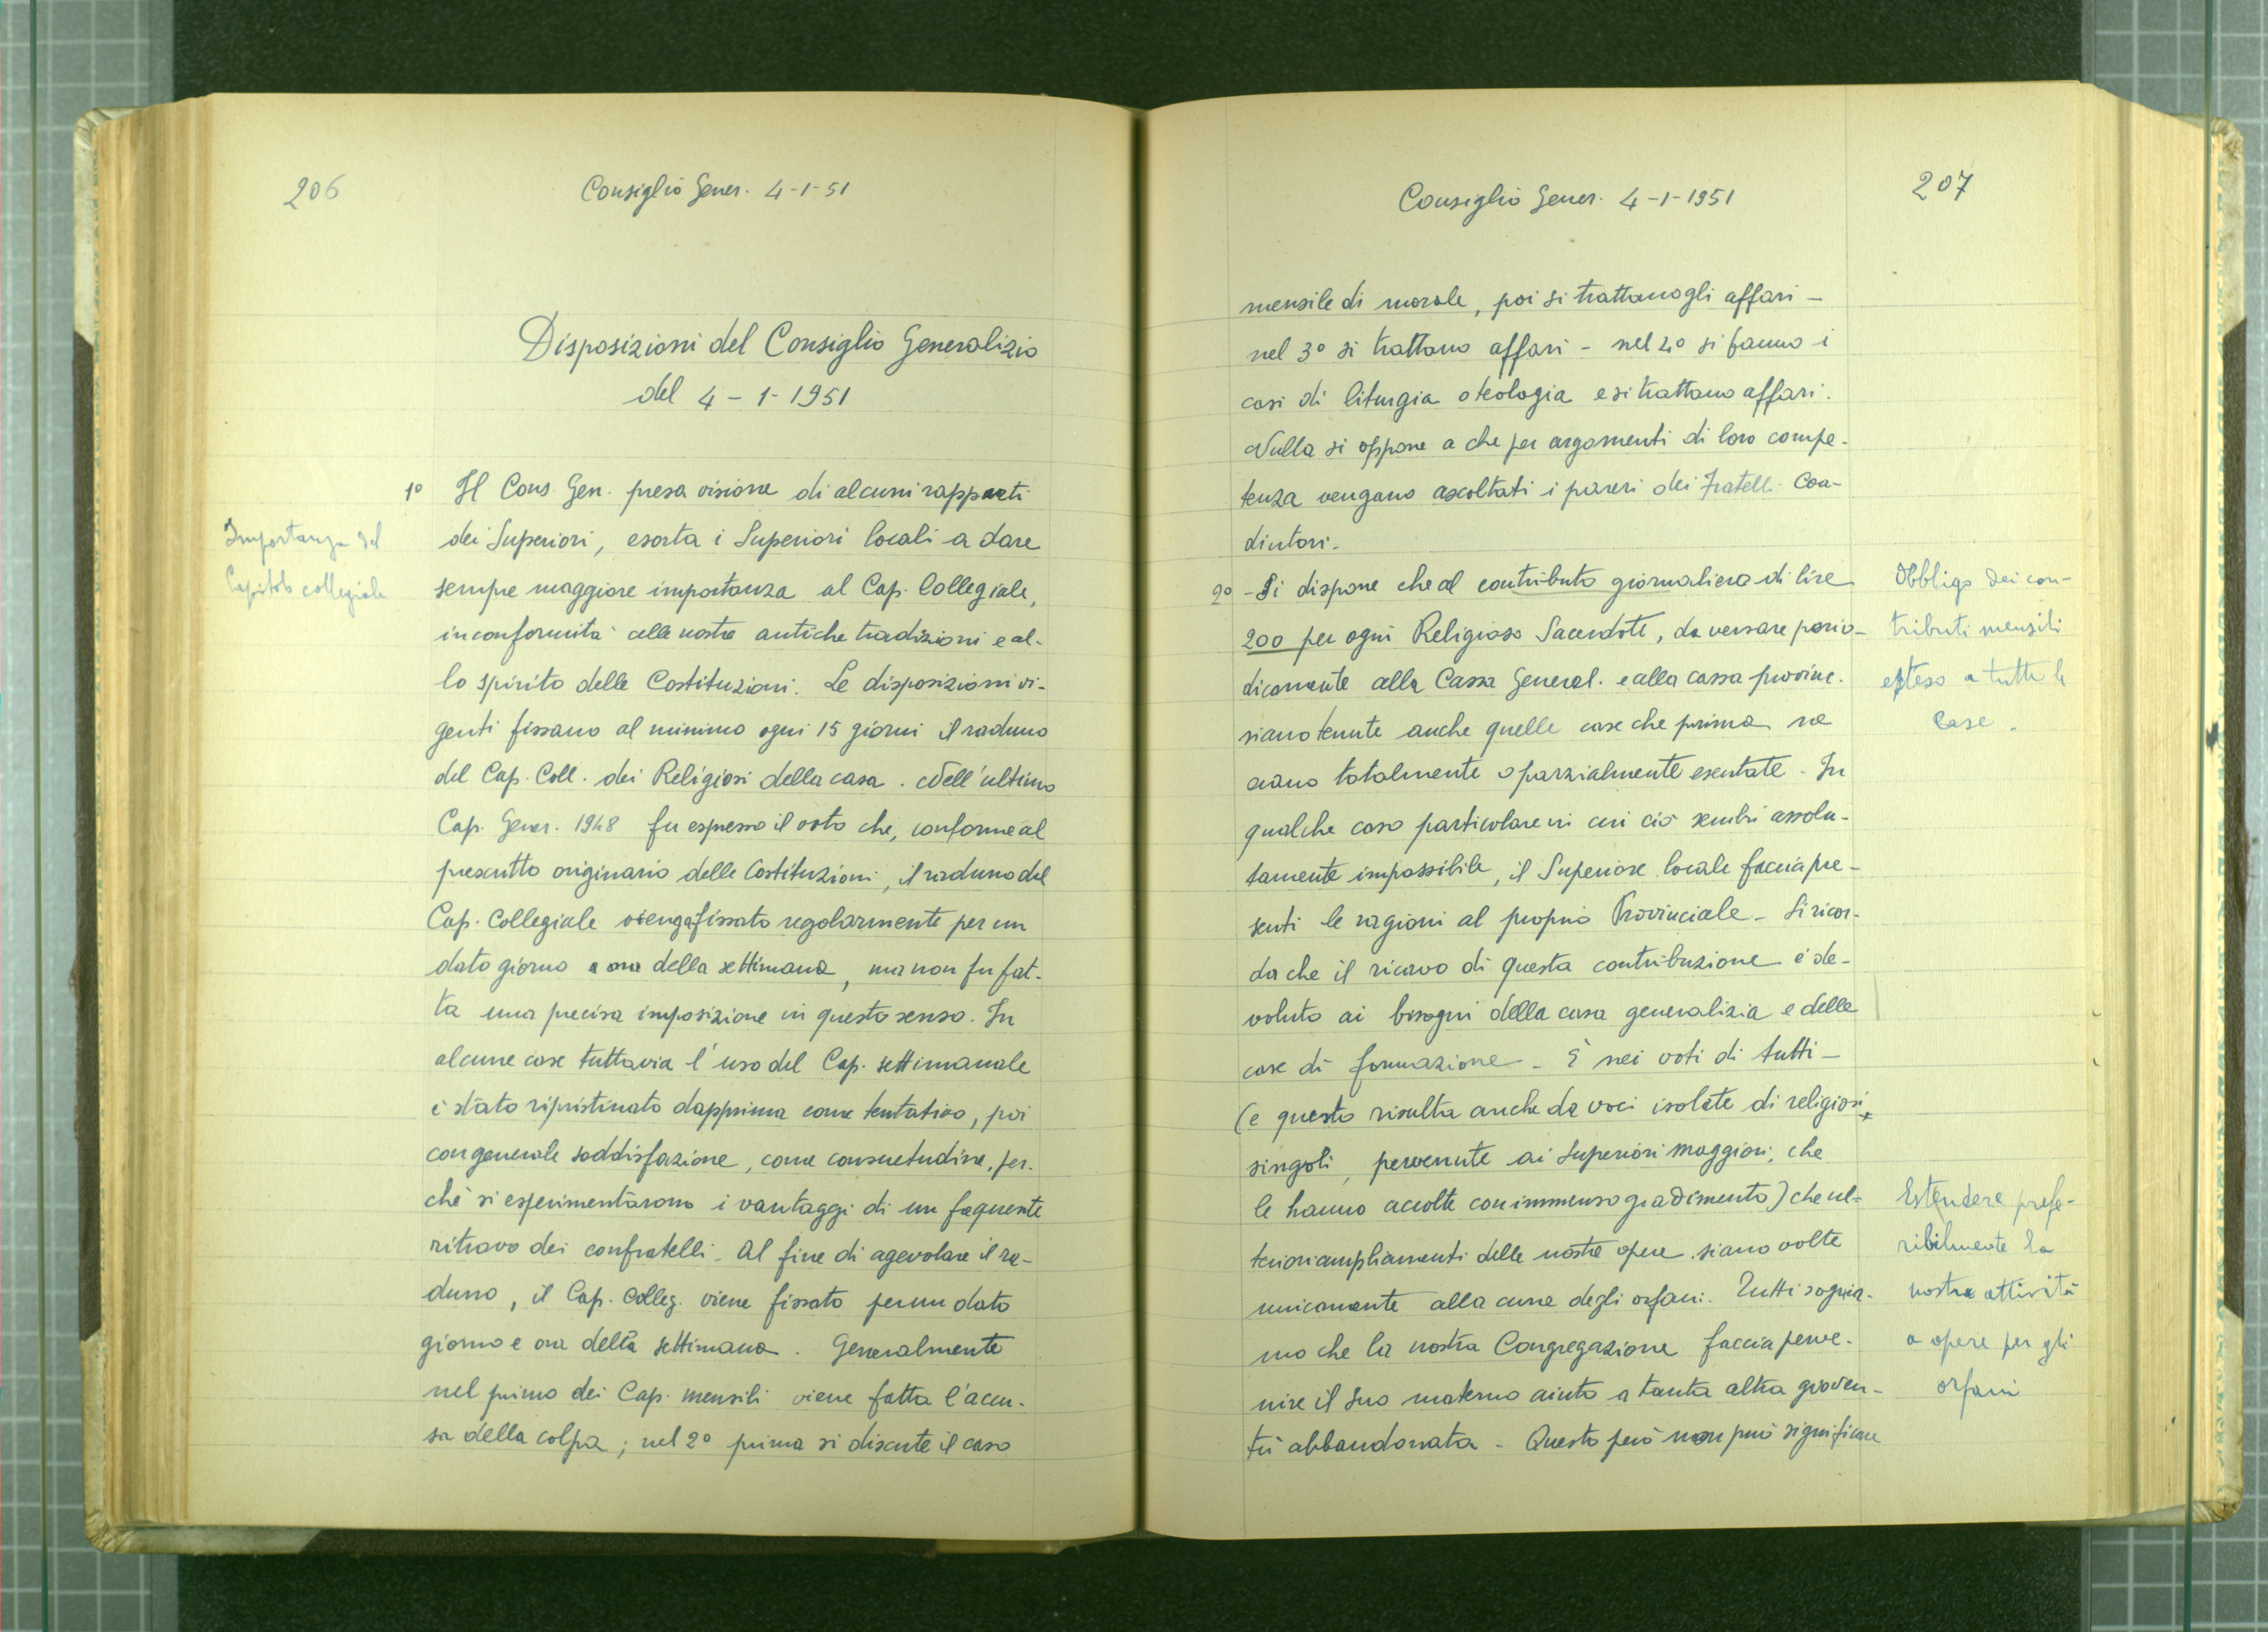 206
Consiglio Gener. 4-1-51
Disposizioni del Consiglio Generalizio
del 4-1-1951
Importanza del
Capitolo collegiale
1° Il Cons. Gen. presa visione di alcuni rapporti
dei Superiori, esorta i Superiori locali a dare
sempre maggiore importanza al Cap. Collegiale,
in conformità alle nostre antiche tradizioni e al-
lo spirito delle Costituzioni. Le disposizioni vi-
genti fissano al minimo ogni 15 giorni il raduno
del Cap. Coll. dei Religiosi della casa. Nell'ultimo
Cap. Gener. 1948 fu espresso il voto che, conforme al
prescritto originario delle Costituzioni, il raduno del
Cap. Collegiale venga fissato regolarmente per un
dato giorno e ora della settimana, ma non fu fat-
ta una precisa imposizione in questo senso. In
alcune case tuttavia l'uso del Cap. settimanale
è stato ripristinato dapprima come tentativo, poi
con generale soddisfazione, come consuetudine, per-
chè si esperimentarono i vantaggi di un frequente
ritrovo dei confratelli. Al fine di agevolare il ra-
duno, il Cap. Colleg. viene fissato per un dato
giorno e ora della settimana. Generalmente
nel primo dei Cap. mensili viene fatta l'accu-
sa della colpa; nel 2° prima si discute il caso
Consiglio Gener. 4-1-1951
207
mensile di morale, poi si trattano gli affari -
nel 3° si trattano affari - nel 4° si fanno i
casi di liturgia o teologia e si trattano affari.
Nulla si oppone a che per argomenti di loro compe-
tenza vengano ascoltati i pareri dei Fratelli Coa-
diutori.
2° - Si dispone che al contributo giornaliero di lire
200 per ogni Religioso Sacerdote, da versare perio-
dicamente alla Cassa General. e alla cassa provinc.
siano tenute anche quelle case che prima ne
erano totalmente o parzialmente esentate. In
qualche caso particolare in cui ciò sembri assolu-
tamente impossibile, il Superiore locale faccia pre-
senti le ragioni al proprio Provinciale. Si ricor-
da che il ricavo di questa contribuzione è de-
voluto ai bisogni della casa generalizia e delle
case di formazione. È nei voti di tutti -
(e questo risulta anche da voci isolate di religiosi
singoli, pervenute ai Superiori maggiori, che
le hanno accolte con immenso gradimento) che ul-
teriori ampliamenti delle nostre opere siano volte
unicamente alla cura degli orfani. Tutti sognia-
mo che la nostra Congregazione faccia perve-
nire il suo materno aiuto a tanta altra gioven-
tù abbandonata - Questo però non può significare
Obbligo dei con-
tributi mensili
esteso a tutte le
Case.
Estendere prefe-
ribilmente la
nostra attività
a opere per gli
orfani